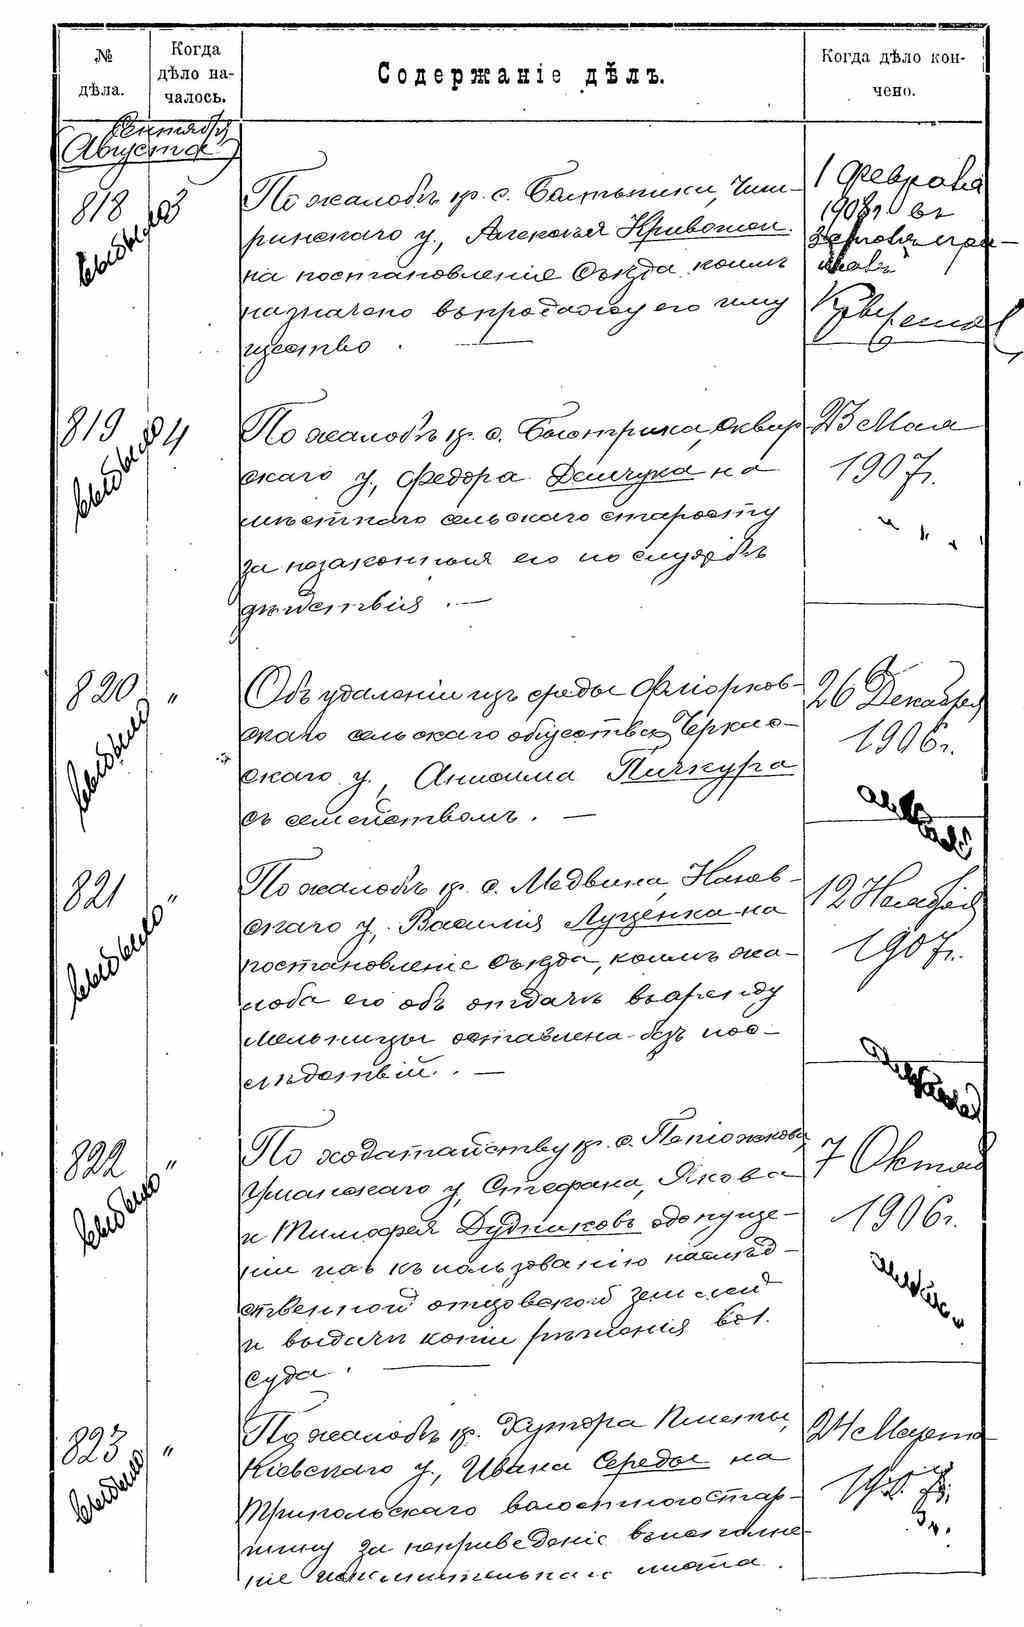 № дѣла.
Когда дѣло на-
чалось.
Содержаніе дѣлъ.
Когда дѣло кон-
чено.
Сентября
Августа
818
3
выбыло
По жалобѣ кр. с. Болтышки, Чиги-
ринскаго у., Алексѣя Кривошеи
на постановленіе Съѣзда, коимъ
назначено въ продажу его иму
щество.
1 Февраля
1908 г. въ
819
4
выбыло
По жалобѣ кр. с. Быстрика, Сквир
скаго у., Федора Демчука на
мѣстнаго сельскаго старосту
за незаконныя его по службѣ
дѣйствія. —
23 Мая
1907 г.
820
"
выбыло
Объ удаленіи изъ среды Фліорков-
скаго сельскаго общества, Черкас-
скаго у., Анисима Пичкура
съ семействомъ. —
26 Декабря
1906 г.
821
"
выбыло
По жалобѣ кр. с. Медвина, Канев-
скаго у., Василія Луценка на
постановленіе Съѣзда, коимъ жа-
лоба его объ отдачѣ въ аренду
мельницы оставлена безъ пос-
лѣдствій. —
12 Ноября
1907 г.
822
"
выбыло
По ходатайству кр. с. Попіожкова,
Уманскаго у., Стефана, Якова
и Тимофея Дудниковъ о допуще-
ніи ихъ къ пользованію наслѣд-
ственной отцовской землей
и выдачи копіи рѣшенія вол.
суда.
7 Октяб
1906 г.
823
"
выбыло
По жалобѣ кр. Хутора Плюты,
Кіевскаго у., Ивана Середы на
Трипольскаго волостного стар-
шину за неприведеніе въ исполне-
ніе исполнительнаго листа.
24 Марта